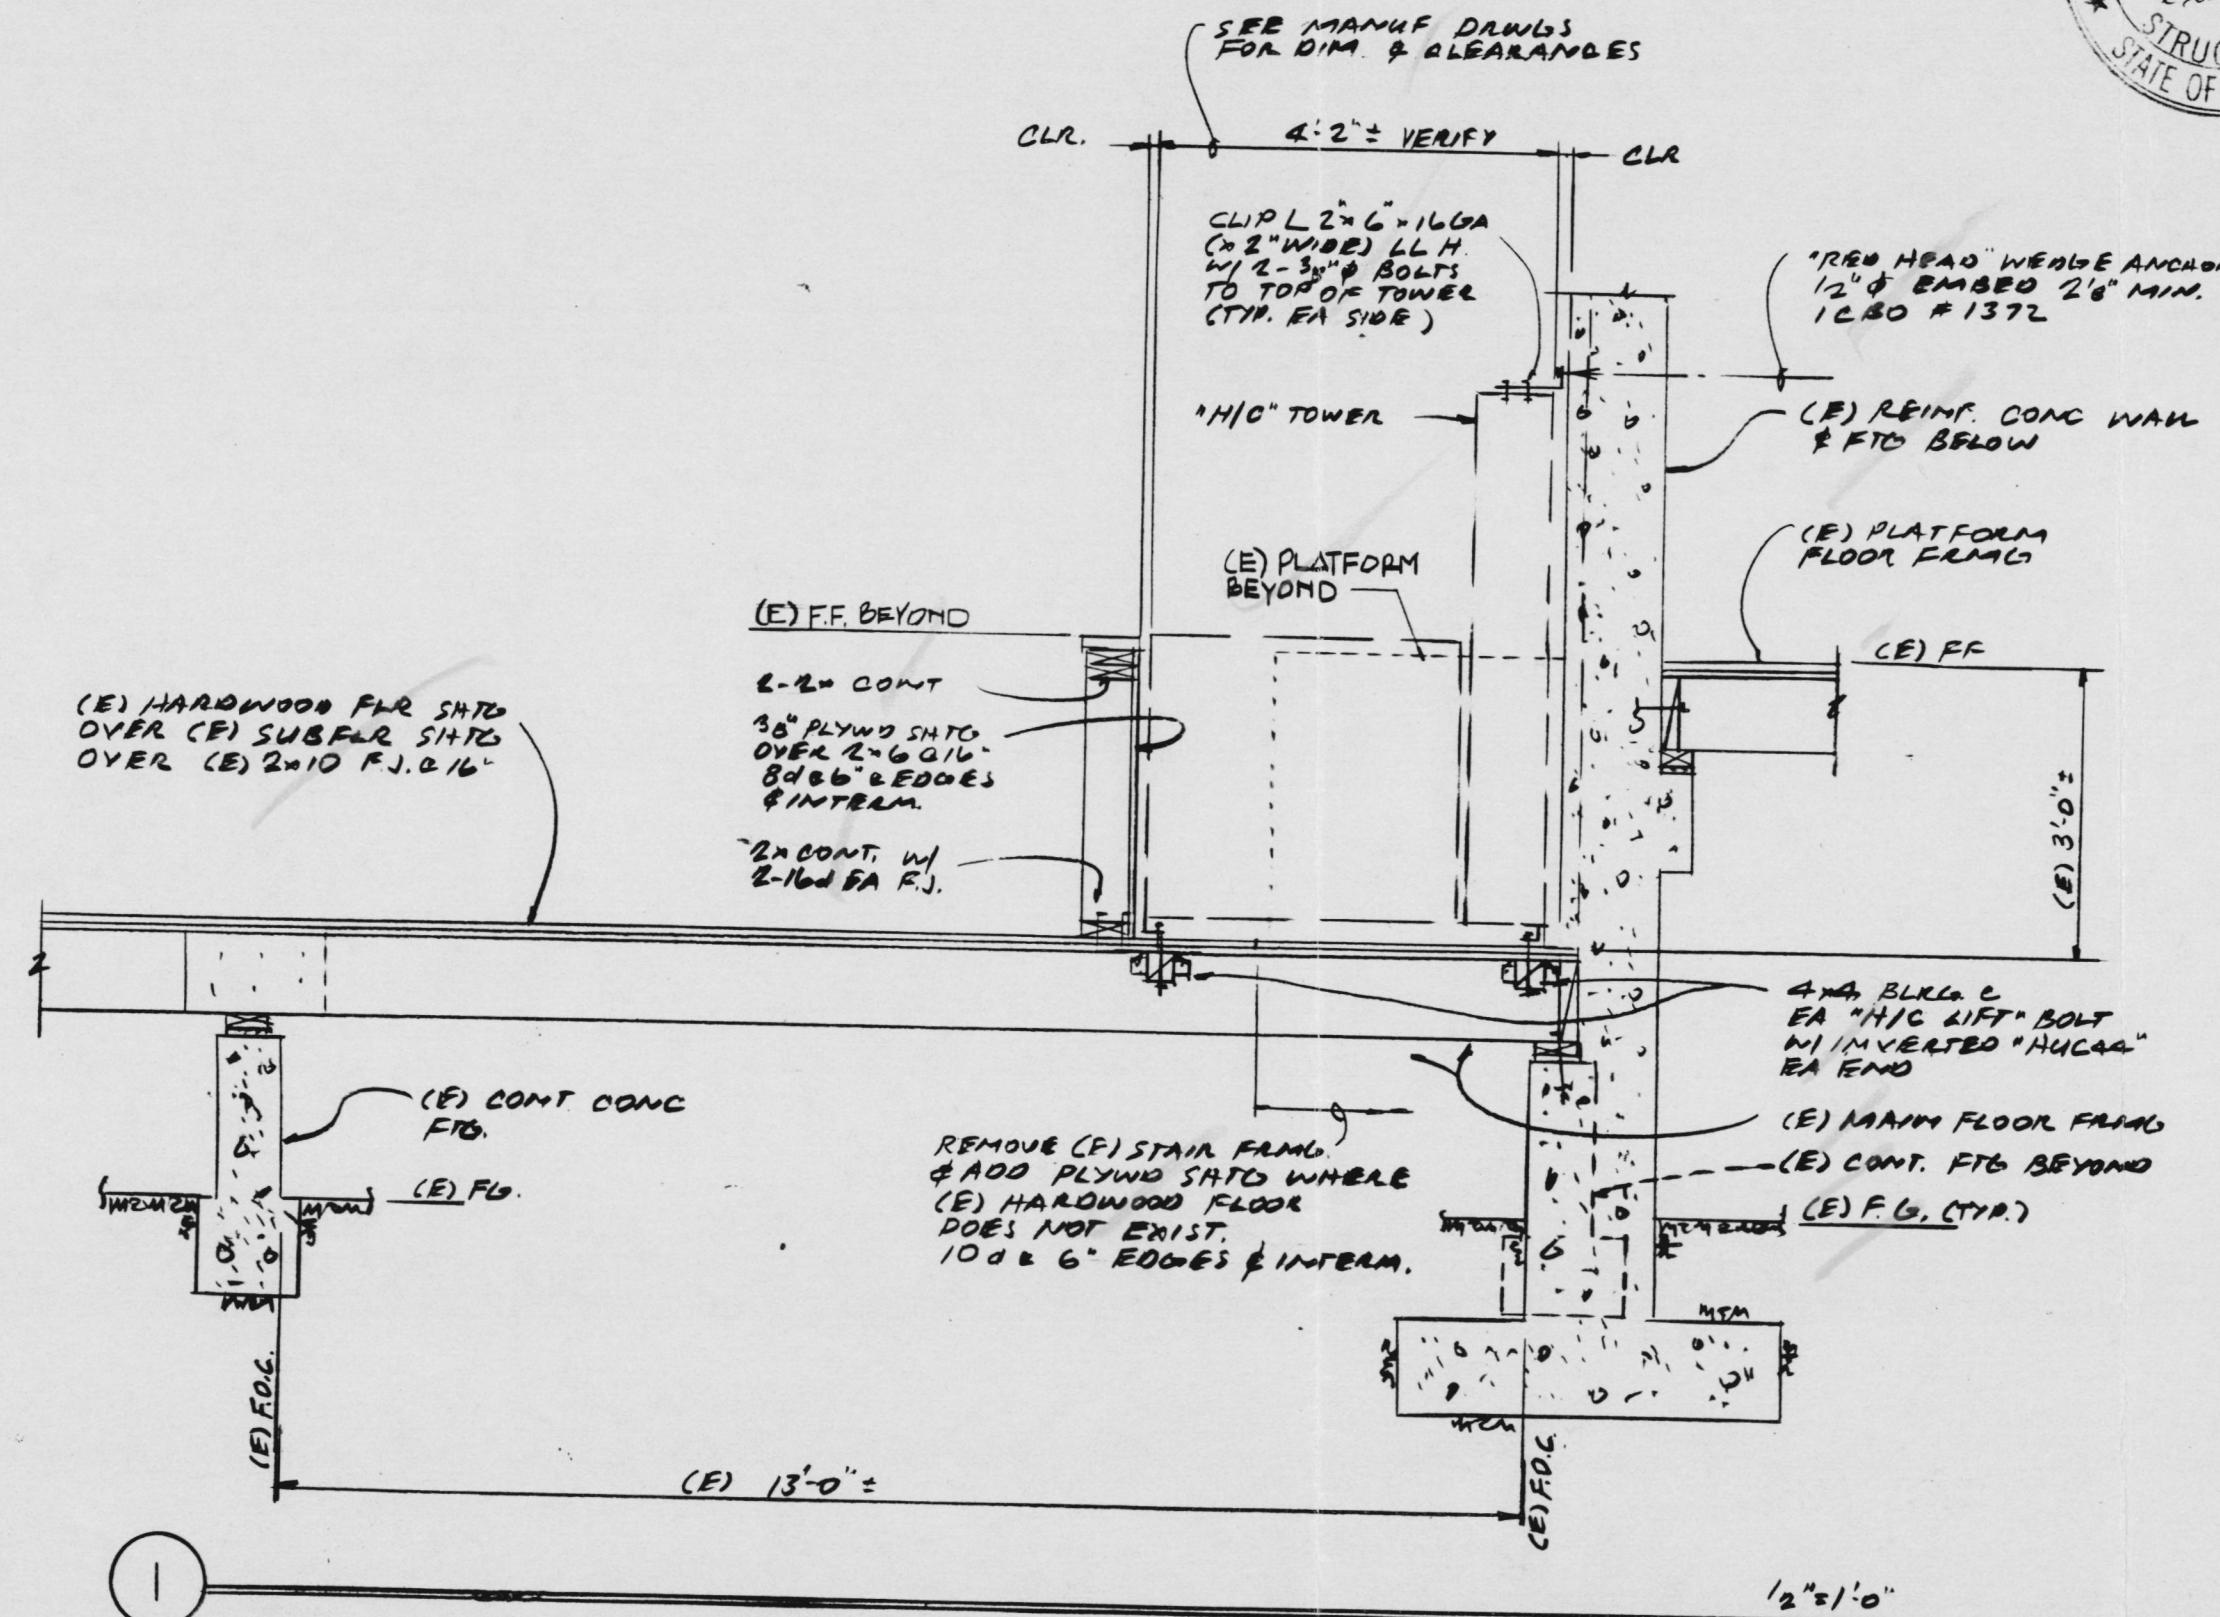 SEE MANUF DRWGS
FOR DIM. & CLEARANCES
STRUC
STATE OF
CLR.
4'-2"± VERIFY
CLR
CLIP L 2"x 6"x 16GA
(x 2" WIDE) LL H.
W/ 2-3/8"φ BOLTS
TO TOP OF TOWER
(TYP. EA SIDE)
"RED HEAD" WEDGE ANCHOR
1/2"φ EMBED MIN.
ICBO #1372
"H/C" TOWER
(E) REINF. CONC WALL
& FTG BELOW
(E) PLATFORM
FLOOR FRMG
(E) PLATFORM
BEYOND
(E) F.F. BEYOND
(E) FF
2-2x CONT
3/8" PLYWD SHTG
OVER 2x6 @16"
8d @6" @ EDGES
& INTERM.
(E) HARDWOOD FLR SHTG
OVER (E) SUBFLR SHTG
OVER (E) 2x10 F.J. @16"
(E) 3'-0"±
2x CONT. W/
2-16d EA F.J.
4x4 BLKG. @
EA "H/C LIFT" BOLT
W/ INVERTED "HUC44"
EA END
(E) CONT CONC
FTG.
(E) MAIN FLOOR FRMG
REMOVE (E) STAIR FRMG.
& ADD PLYWD SHTG WHERE
(E) HARDWOOD FLOOR
DOES NOT EXIST.
10d @ 6" EDGES & INTERM.
(E) CONT. FTG BEYOND
(E) FG.
(E) F.G. (TYP.)
(E) F.O.C.
(E) 13'-0"±
(E) F.O.C.
1
1/2"=1'-0"